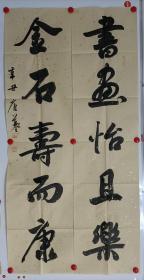 書畫怡且樂
金石壽而康
辛丑